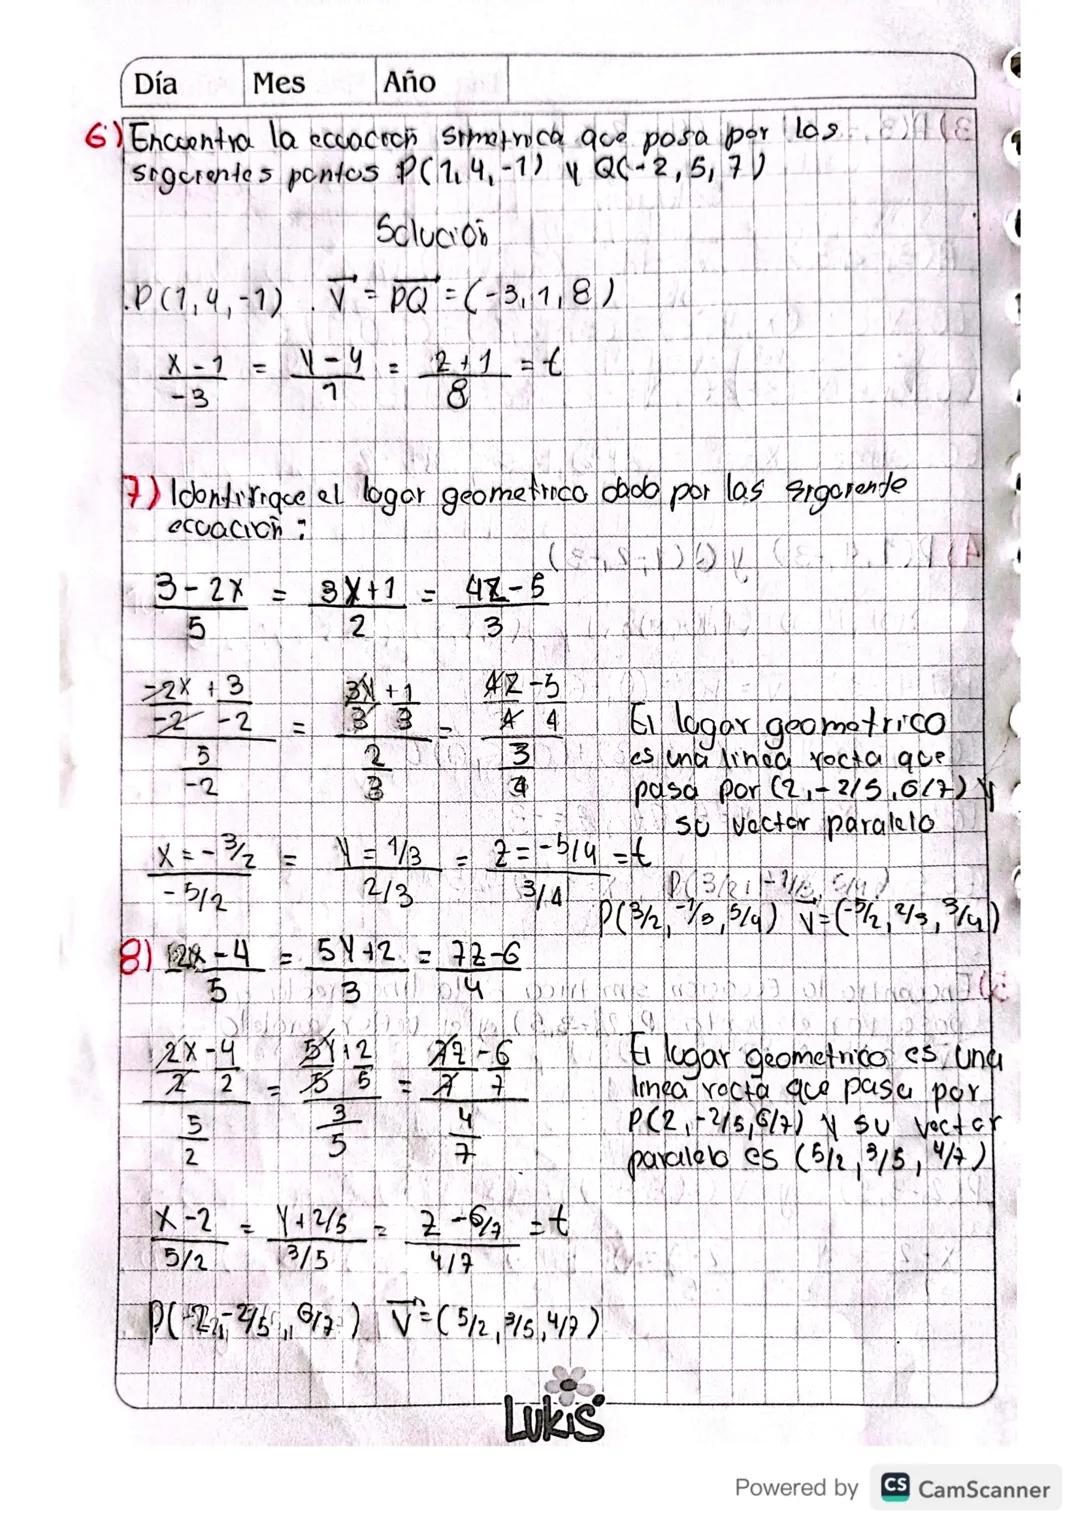 Día Mes Año
6) Encuentra la ecuación simetrica que pasa por los
siguientes puntos P(1,4,-1) y Q(-2,5,7)
Solución
.P(1,4,-1) . V = PQ = (-3,1,8)
x-1/-3 = y-4/1 = z+1/8 = t
7) Identifique el lugar geometrico dado por las siguiente
ecuación:
3-2x/5 = 3y+1/2 = 4z-5/3
-2x/-2 + 3/-2 / 5/-2 = 3y/3 + 1/3 / 2/3 = 4z/4 - 5/4 / 3/4
El lugar geometrico
es una linea recta que
pasa por (2,-2/5,6/7) y
su vector paralelo
x=-3/2 / -5/2 = y=1/3 / 2/3 = z=-5/4 / 3/4 = t
P(3/2,-1/3,5/4) V=(-5/2,2/3,3/4)
8) 2x-4/5 = 5y+2/3 = 7z-6/4
2x/2 - 4/2 / 5/2 = 5y/5 + 2/5 / 3/5 = 7z/7 - 6/7 / 4/7
El lugar geometrico es una
linea recta que pasa por
P(2,-2/5,6/7) y su vector
paralelo es (5/2,3/5,4/7)
x-2/5/2 = y+2/5 / 3/5 = z-6/7 / 4/7 = t
P(2,-2/5,6/7) V=(5/2,3/5,4/7)
LUKIS
Powered by CS CamScanner